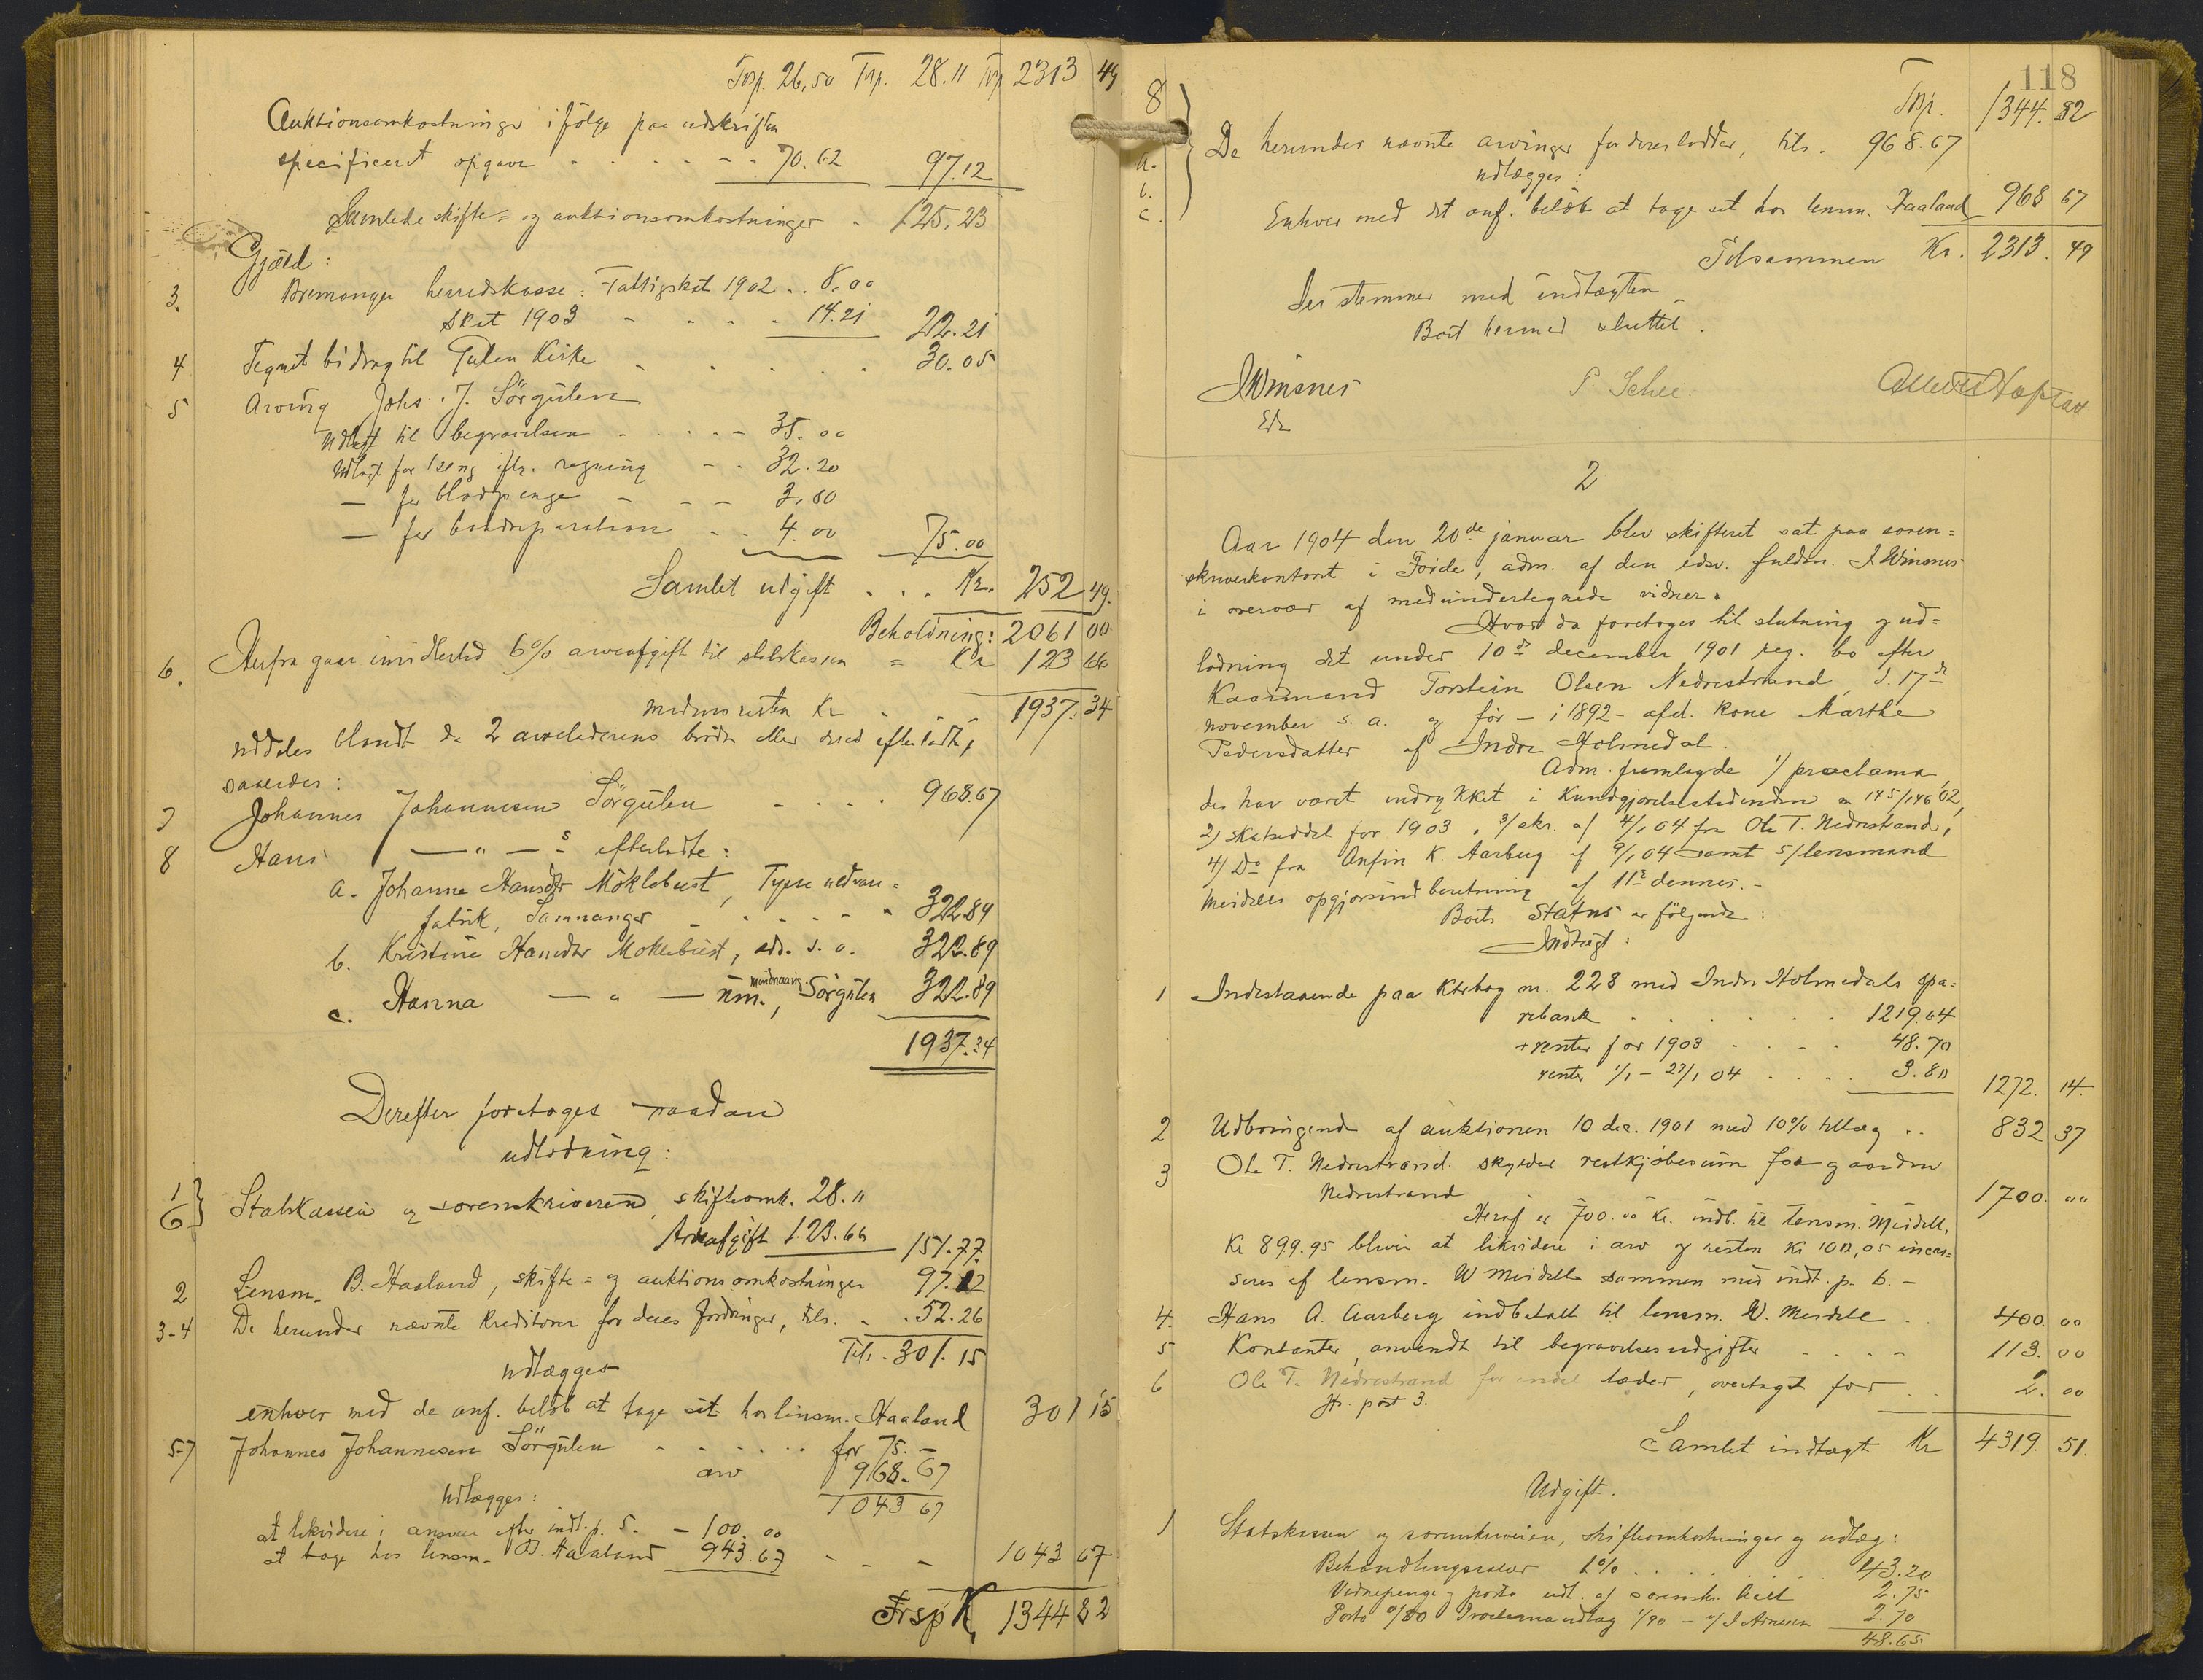 Trsp. 26,50 Trsp. 28.11 Trsp 2313 49
Auktionsomkostninger ifölge paa udskriften
specificeret opgave - - - - - 70.62 97.12
Samlede skifte- og auktionsomkostninger - 125.23
Gjæld:
3. Bremanger herredskasse: Fattigskat 1902 . . 8,00
Skat 1903 - - - - 14.21 22.21
4 Tegnet bidrag til Gulen Kirke - - - - 30.05
5 Arving Johs. J. Sörgulen
Udlagt til begravelsen - - - - 35.00
Udlagt for iflg. regning - - 32.20
— for - - - 3,80
— for baadreparation - - 4.00 75.00
Samlet udgift . . . Kr. 252 49.
Beholdning: 2061 00
6. Herfra gaar imidlertid 6% arveafgift til statskassen = Kr 123 66
medens resten Kr - - - 1937.34
uddeles blandt de 2 arveladerens brödre eller deres efterladte,
saaledes:
7 Johannes Johannesen Sörgulen - - - - 968.67
8 Hans — " — s efterladte:
a. Johanne Hansdtr Möklebust, Tysse uldvare-
fabrik, Samnanger - - - - - 322.89
b. Kristine Hansdtr Moklebust, sds. s. a. 322.89
mindreaarig
c. Hanna — " — um., Sörgulen 322.89
1937.34
Derefter foretoges saadan
udlodning:
1
6 } Statskassen og sorenskriveren, skifteomk. 28.11
Arveafgift 123.66 151.77.
2 Lensm. B. Haaland, skifte- og auktionsomkostninger 97.12
3-4 De herunder nævnte kreditorer for deres fordringer, tils. - . 52.26
Tils. 301.15
udlægges
enhver med de anf. belöb at tage sit hos lensm. Haaland 301 15
5-7 Johannes Johannesen Sörgulen - - - - - for 75.-
arv 968.67
udlægges: 1043 67
at likvidere i ansvar efter indt. p. 5. - 100.00
at tage hos lensm. B. Haaland 943.67 - - - 1043 67
Trsp Kr 1344 82
118
Trsp. 1344.82
8
a.
b.
c.
De herunder nævnte arvinger for deres lodder, tils. 968.67
udlægges:
Enhver med det anf. belöb at tage sit hos lensm. Haaland 968 67
Tilsammen Kr. 2313.49
der stemmer med indtægten
Boet hermed sluttet.
J Winsnes P. Schei.
Edv
2
Aar 1904 den 20de januar blev skifteret sat paa soren-
skriverkontoret i Förde, adm. af den edsv. fuldm. J Winsnes
i overvær af medundertegnede vidner.
Hvor da foretoges til slutning og ud-
lodning det under 10de december 1901 reg. bo efter
Kaarmand Torstein Olsen Nedrestrand, d. 17de
november s. a. og för - i 1892 - afd. kone Marthe
Pedersdatter af Indre Holmedal.
Adm. fremlagde 1/ proclama
der har været indrykket i Kundgjörelsestidenden nr 145/146 02,
2) skatseddel for 1903, 3/ skr. af 4/1 04 fra Ole T. Nedrestrand,
4/ Do fra Anfin K. Aarberg af 9/1 04 samt 5/ lensmand
Meidells opgjör indberetning af 11te dennes. -
Boets Status er fölgende:
Indtægt:
1 Indestaaende paa Ktrbog nr. 228 med Indre Holmedals spa-
rebank - - - - - - 1219.64
+ renter for 1903 - - - - 48.70
renter 1/1 - 27/1 04 - - - - 3.80 1272. 14.
2 Udbringende af auktionen 10 dec. 1901 med 10% tillæg . . 832 37
3 Ole T. Nedrestrand skylder restkjöbesum for gaarden
Nedrestrand 1700.00
Heraf er 700.00 Kr. indb. til lensm. Meidell,
Kr 899.95 bliver at likvidere i arv og resten Kr 100,05 incas-
seres af lensm. W Meidell sammen med indt. p. 6. -
4. Hans A. Aarberg indbetalt til lensm. W. Meidell . . 400.00
5 Kontanter, anvendt til begravelsesudgifter - - - - 113.00
6 Ole T. Nedrestrand for endel læder, overtaget for . . 2.00
Jfr. post 3.
Samlet indtægt Kr 4319. 51.
Udgift.
1 Statskassen og sorenskriveren, skifteomkostninger og udlæg:
Behandlingssalær 1% . . . . . . 43.20
Vidnepenge og porto udl. af sorenskr. 2.75
Porto Proclama udlæg 1/90 - 2.70
48.65